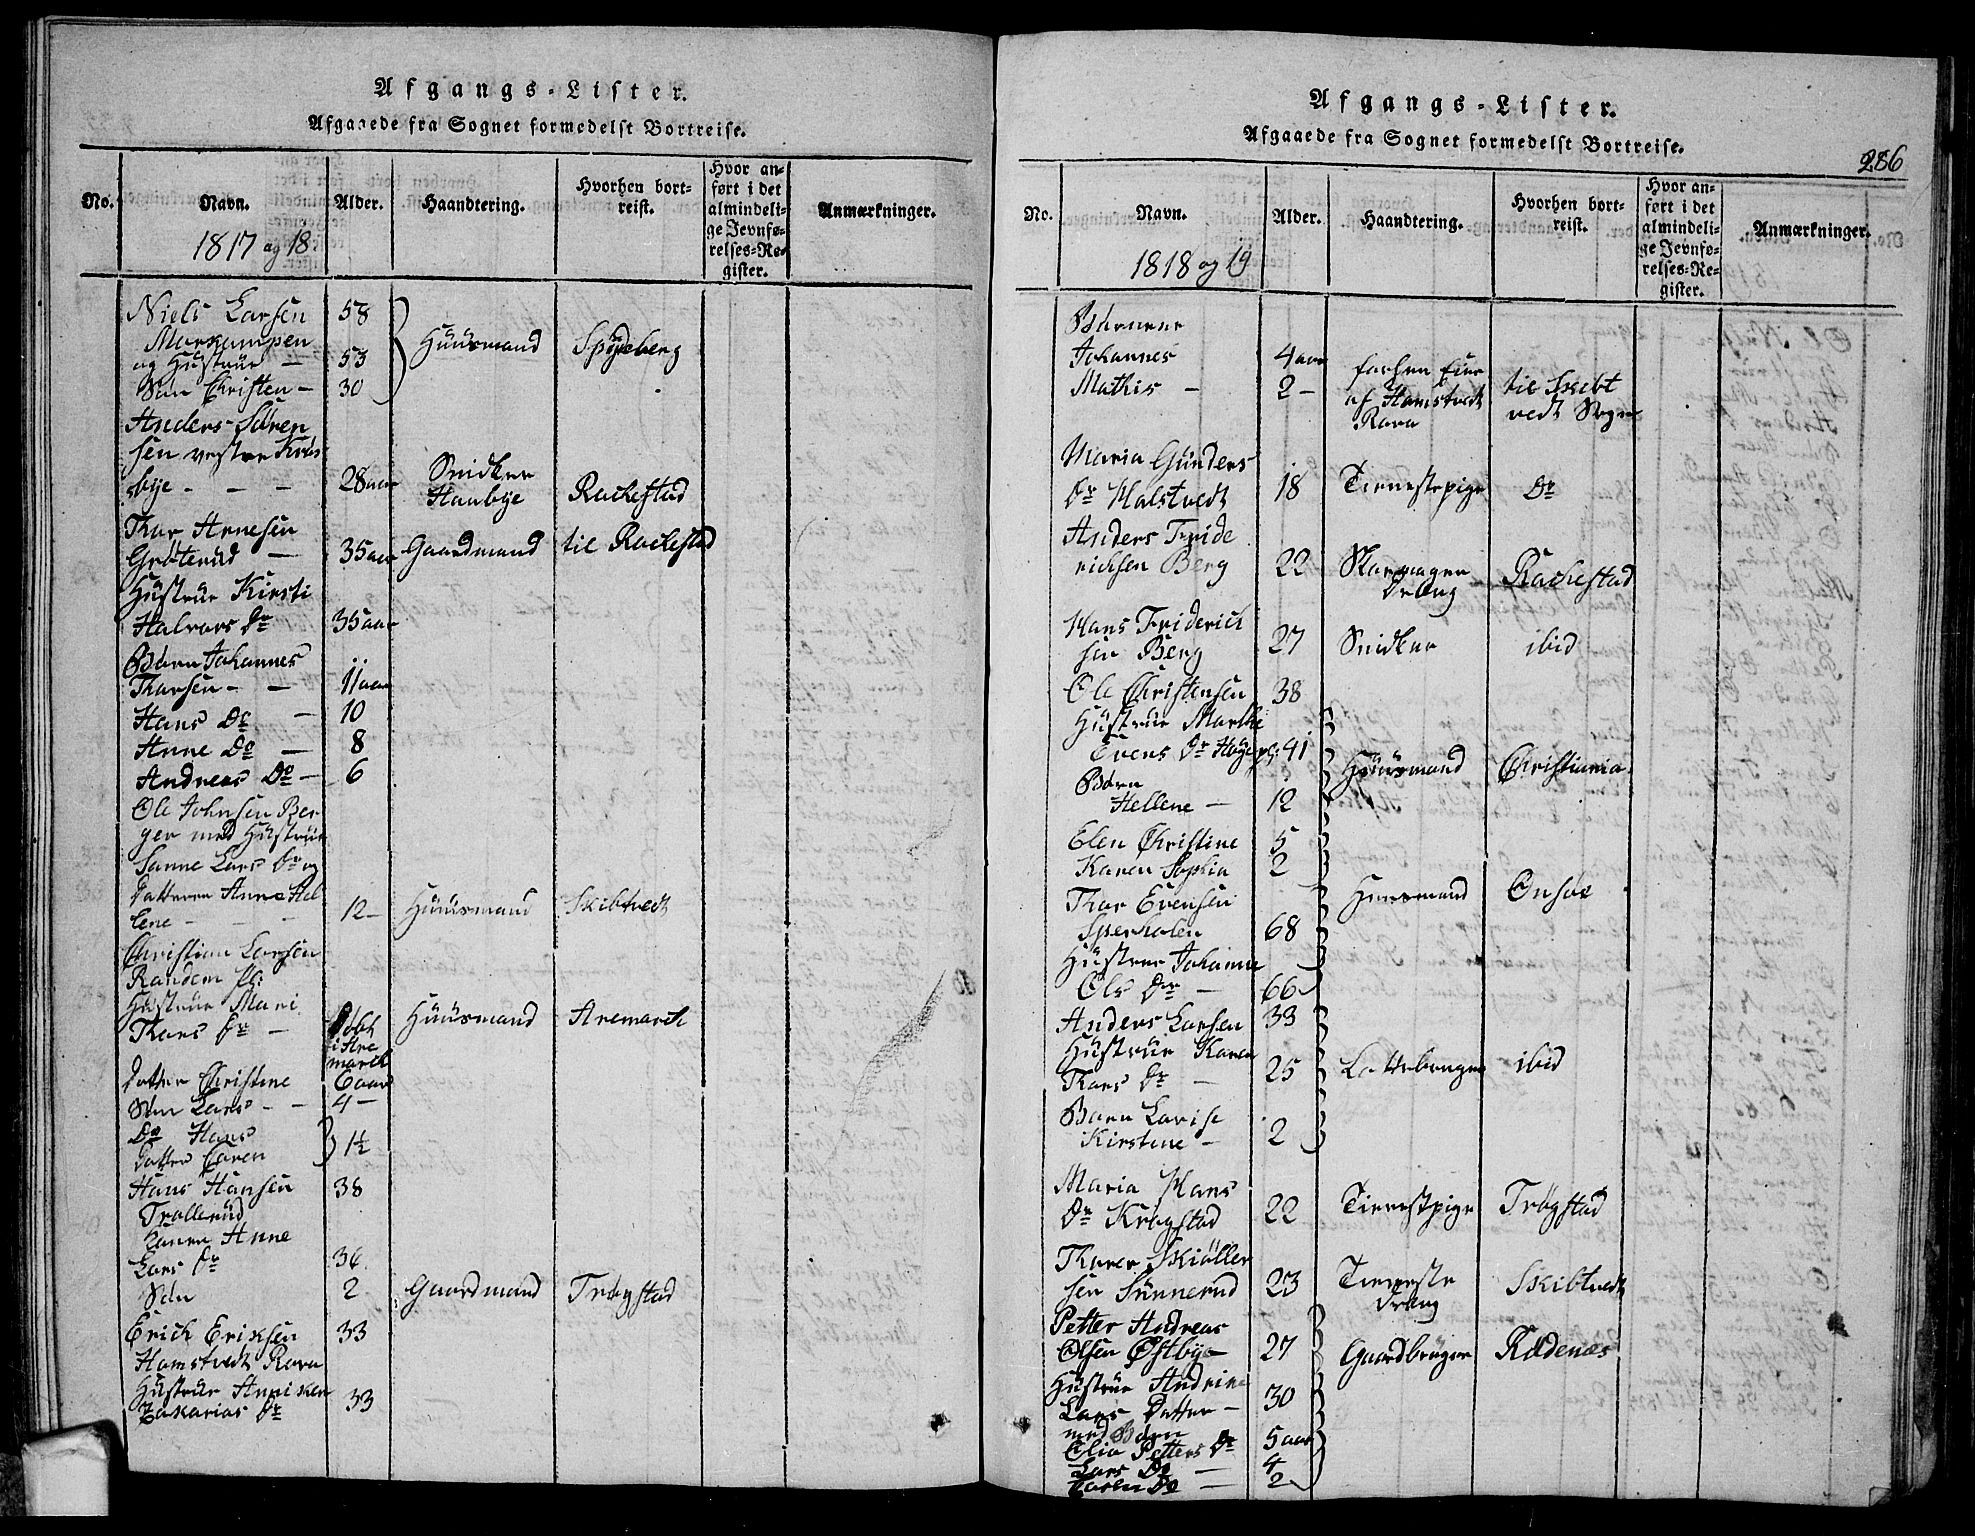 Afgangs-Lister.
Afgaaede fra Sognet formedelst Bortreise.
No.
Navn.
1817 og 18.
Alder.
Haandtering.
Hvorhen bort-
reist.
Hvor an-
ført i det
almindeli-
ge Jevnfø-
relses-Re-
gister.
Anmærkninger.
Niels Larsen 58
Morkumpen
og Hustrue - 53 Huusmand Spydeberg
Søn Christen - 30
Anders Søren
sen vestre Kräs
bye - - - 28 aar Snidker Haabye Rackestad
Thor Arnesen
Grøterud - 35 aar Gaardmand til Rackestad
Hustrue Kirsti
Halvors Dr 35 aar
Børn Johannes
Thorsen - - 11 aar
Hans Do - 10
Anne Do - 8
Andreas Do - 6
Ole Johnsen Ber
ger med Hustrue
Sanne Lars Dr og
Datteren Anne Hel
lene - - 12 - Huusmand Skibtvedt
Christian Larsen
Randem Pl:
Hustrue Mari
Thors Dr - Døbt Huusmand Aremarck
i Are
marck
Datter Christine 6 aar
Søn Lars - - 4 -
Do Hans
Datter Caren 1½
Hans Hansen 38
Trollerud
Konen Anne
Lars Dr 36.
Søn 2 Gaardmand Trøgstad
Erich Eriksen 33
Hamstvedt Rara
Hustrue Anniken
Zakarias Dr 33
Afgangs-Lister.
Afgaaede fra Sognet formedelst Bortreise.
286
No.
Navn.
1818 og 19
Alder.
Haandtering.
Hvorhen bort-
reist.
Hvor an-
ført i det
almindeli-
ge Jevnfø-
relses-Re-
gister.
Anmærkninger.
Børnene
Johannes 4 aar
Mathis - 2 - forhen Eier til Skibt
af Hamstvedt vedt Sogn
Rara
Maria Gunders
Dr Halstvedt 18 Tienestepige Do
Anders Fride
richsen Berg 22 Skomager Rackestad
Dräng
Hans Friderich
sen Berg 27 Snidker ibid
Ole Christensen 38
Hustrue Marthe
Evens Dr Høye pl: 41 Huusmand Christiania
Børn
Hellene - 12
Elen Christine 5
Karen Sophia 2
Thor Evensen Huusmand Onsøe
Sperholen 68
Hustrue Johanne
Ols Dr - 66
Anders Larsen 33
Hustrue Karen
Thors Dr - 25 ibid
Børn Lovise
Kirstine - 2
Maria Hans
Dr Kragstad 22 Tienestpige Trøgstad
Thorer Skiøller
sen Sunnerud 23 Tieneste Skibtvedt
Dreng
Petter Andreas
Olsen Østbye 27 Gaardbruger Rødenæs
Hustrue Andrine
Lars Datter - 30
med Børn
Olia Petters Dr 5 aar
Lars Do - 4
Caren Do 2